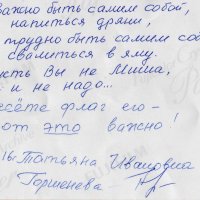 важно быть самим собой,
напиться дряни,
трудно быть самим соб
свалиться в яму.
усть Вы не Миша,
и не надо...
есёте флаг его-
от это важно!
Татьяна Ивановна
Горшенева